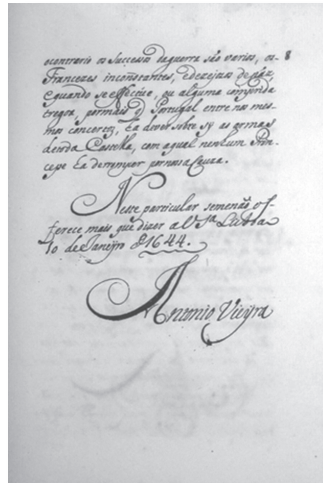 ocontrario os successos daguerra são varios, os 8
Francezes inconstantes, edezejozos de páz,
equando se effectue, ou alguma comprida
tregoa, pormais q̃ Portugal entre nos mes-
mos concertos, ha dever sobre sy as armas
detoda Castella, com aqual nenhum Prin-
cepe ha derromper pornossa Cauza.
Neste particular semenaõ of-
ferece mais que dizer a V. S.ª Lisboa
10 de Janeyro de 1644.
Antonio Vieyra